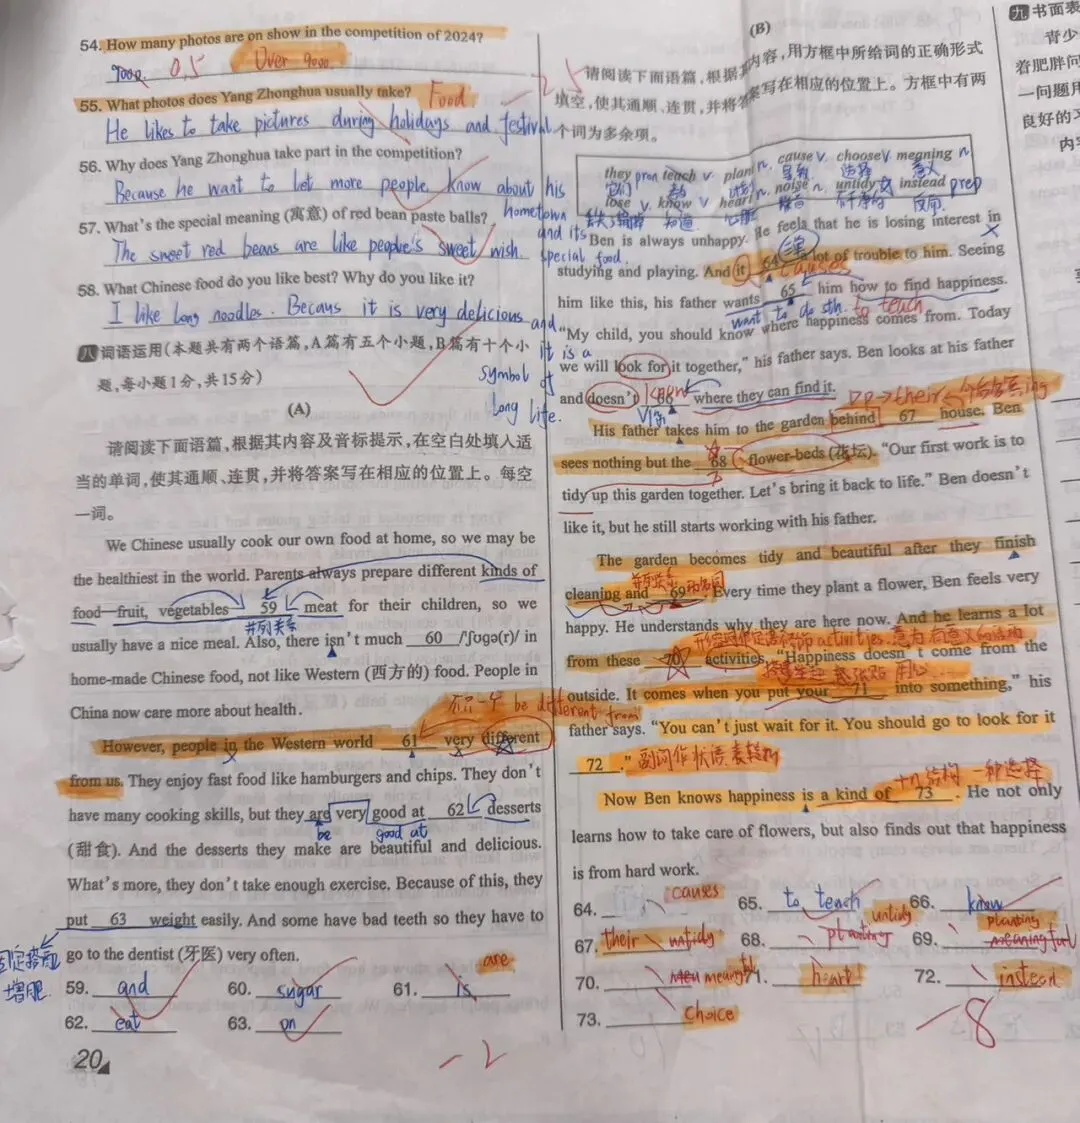 54. How many photos are on show in the competition of 2024?
9000. 0.5 Over 9000.
55. What photos does Yang Zhonghua usually take? Food
He likes to take pictures during holidays and festival
56. Why does Yang Zhonghua take part in the competition?
Because he want to let more people know about his
hometown and its special food.
57. What's the special meaning (寓意) of red bean paste balls?
The sweet red beans are like people's sweet wish.
58. What Chinese food do you like best? Why do you like it?
I like long noodles. Becaus it is very delicious and
it is a
symbol of
long life.
八 词语运用(本题共有两个语篇,A篇有五个小题,B篇有十个小
题,每小题1分,共15分)
(A)
请阅读下面语篇,根据其内容及音标提示,在空白处填入适
当的单词,使其通顺、连贯,并将答案写在相应的位置上。每空
一词。
We Chinese usually cook our own food at home, so we may be
the healthiest in the world. Parents always prepare different kinds of
food—fruit, vegetables 59 meat for their children, so we
并列关系
usually have a nice meal. Also, there isn't much 60 /ˈʃʊɡə(r)/ in
home-made Chinese food, not like Western (西方的) food. People in
China now care more about health.
be different from
However, people in the Western world 61 very different
from us. They enjoy fast food like hamburgers and chips. They don't
have many cooking skills, but they are very good at 62 desserts
be good at
(甜食). And the desserts they make are beautiful and delicious.
What's more, they don't take enough exercise. Because of this, they
put 63 weight easily. And some have bad teeth so they have to
固定搭配
增肥
go to the dentist (牙医) very often.
59. and 60. sugar 61. is are
62. eat 63. on
-2
20
(B)
请阅读下面语篇,根据其内容,用方框中所给词的正确形式
填空,使其通顺、连贯,并将答案写在相应的位置上。方框中有两
个词为多余项。
they pron teach v. plant n. cause v. choose v. meaning n
它们 教 导致 选择 意义
lose v. know v heart n. noise n. untidy instead prep
知道 心脏 噪音
Ben is always unhappy. He feels that he is losing interest in
studying and playing. And it 64 a lot of trouble to him. Seeing
三单 causes
him like this, his father wants 65 him how to find happiness.
want to do sth. to teach
"My child, you should know where happiness comes from. Today
we will look for it together," his father says. Ben looks at his father
and doesn't 66 where they can find it.
know
His father takes him to the garden behind 67 house. Ben
sees nothing but the 68 flower-beds (花坛). "Our first work is to
tidy up this garden together. Let's bring it back to life." Ben doesn't
like it, but he still starts working with his father.
The garden becomes tidy and beautiful after they finish
并列关系
cleaning and 69. Every time they plant a flower, Ben feels very
happy. He understands why they are here now. And he learns a lot
from these 70 activities. "Happiness doesn't come from the
outside. It comes when you put your 71 into something," his
father says. "You can't just wait for it. You should go to look for it
72." 副词作状语表转折
+n结构 一种选择
Now Ben knows happiness is a kind of 73. He not only
learns how to take care of flowers, but also finds out that happiness
is from hard work.
64. causes 65. to teach 66. know
67. their untidy 68. planting untidy 69. planting meaningful
70. meaningful 71. heart 72. instead
73. choice
-8
九 书面表
青少
着肥胖问
一问题用
良好的习
内容